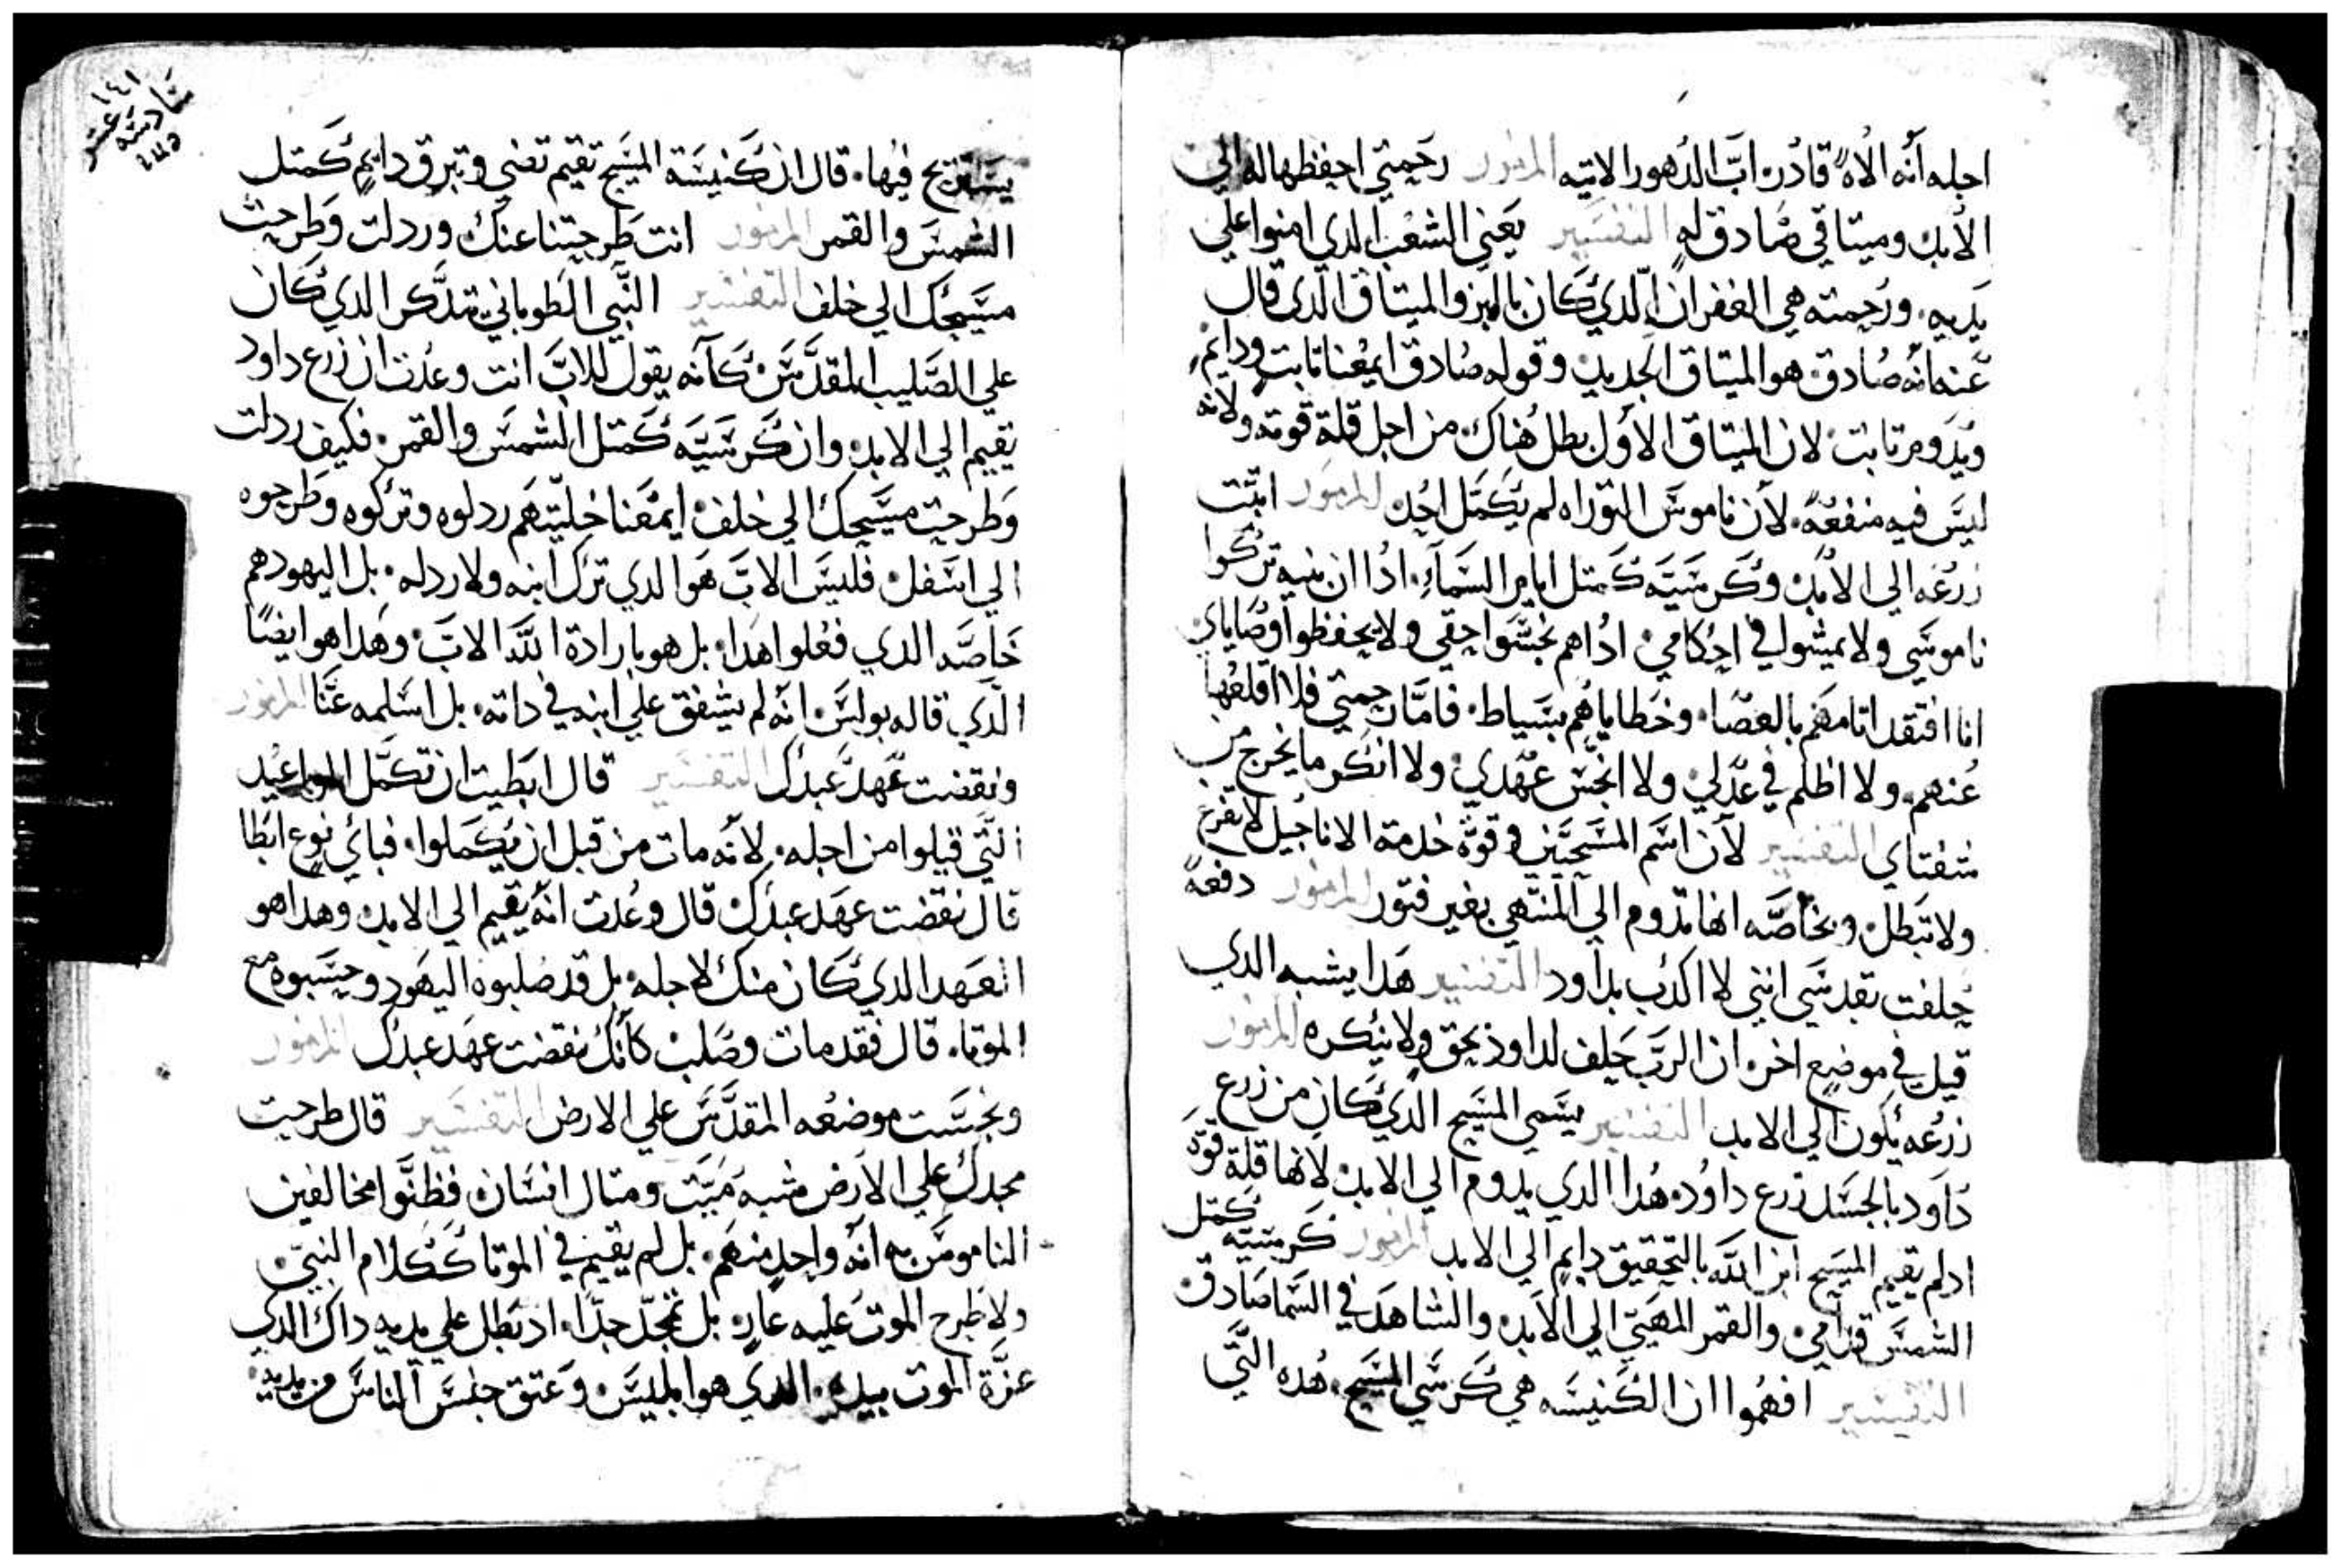 اجله أنه الاه قادر اب الدهور الاتيه المزمور رحمتي احفظها له الي
الأبد وميتاقي صادق له التفسير يعني الشعب الدي امنوا علي
يديه. ورحمته هي الغفران الدي كان بالبر والميتاق الدي قال
عنه انه صادق هو الميتاق الجديد وقوله صادق ايمعنا تابت ودايم
ويدوم تابت لان الميتاق الاول بطل هناك من اجل قلة قوته ولانه
ليس فيه منفعه. لأن ناموس التوراه لم يكمل احد المزمور اتبت
زرعه الي الأبد وكرسيه كمتل ايام السماء. ادا ان بنيه تركوا
ناموسي ولا يمشوا في احكامي ادا هم نجسوا حقي ولا يحفظوا وصاياي
انا افتقد اتامهم بالعصا. وخطاياهم بسياط. فاما رحمتي فلا اقلعها
عنهم. ولا اظلم في عدلي ولا انجس عهدي ولا انكر ما يخرج من
شفتاي التفسير لأن اسم المسيحيين وقوة خدمة الاناجيل لا تفرغ
ولا تبطل وبخاصه انها تدوم الي المنتهي بغير فتور المزمور دفعه
حلفت بقدسي انني لا اكدب بداود التفسير هدا يشبه الدي
قيل في موضع اخر ان الرب حلف لداود بحق ولا ينكره المزمور
زرعه يكون الي الابد التفسير يسمي المسيح الدي كان من زرع
داود بالجسد زرع داود هدا الدي يدوم الي الابد لانها قلة قوه
ادلم يقيم المسيح ابن الله بالتحقيق دايم الي الابد المزمور كرسيه كمتل
الشمس قدامي والقمر المهيي الي الأبد والشاهد في السما صادق
التفسير افهموا ان الكنيسه هي كرسي المسيح. هده التي
١٤١
سادسة عشر
يستريح فيها. قال ان كنيسة المسيح تقيم تضي وتبرق دايم كمتل
الشمس والقمر المزمور انت طرحتنا عنك وردلت وطرحت
مسيحك الي خلف التفسير النبي الطوباني تدكر الدي كان
علي الصليب المقدس كأنه يقول للاب انت وعدت ان زرع داود
يقيم الي الابد وان كرسيه كمتل الشمس والقمر فكيف ردلت
وطرحت مسيحك الي خلف ايمعنا خليتهم ردلوه وتركوه وطرحوه
الي اسفل فليس الاب هو الدي ترك ابنه ولا ردله. بل اليهود هم
خاصه الدي فعلوا هدا بل هو بارادة الله الاب وهدا هو ايضا
الدي قاله بولس انه لم يشفق علي ابنه في داته. بل اسلمه عنا المزمور
ونقضت عهد عبدك التفسير قال ابطيت ان تكمل المواعيد
التي قيلوا من اجله. لانه مات من قبل ان يكملوا. فباي نوع ابطا
قال نقضت عهد عبدك قال وعدت انه يقيم الي الابد وهدا هو
العهد الدي كان منك لاجله. بل قد صلبوه اليهود وحسبوه مع
الموتا. قال فقد مات وصلب كأنك نقضت عهد عبدك المزمور
ونجست موضعه المقدس علي الارض التفسير قال طرحت
مجدك علي الارض شبه ميت ومتال انسان فظنوا مخالفين
الناموس به انه واحد منهم. بل لم يقيم في الموتا ككلام النبي
ولا طرح الموت عليه عار بل تمجد جدا. اد بطل علي يديه داك الدي
عزة الموت بيده. الدي هو ابليس وعتق جنس الناس من يديه